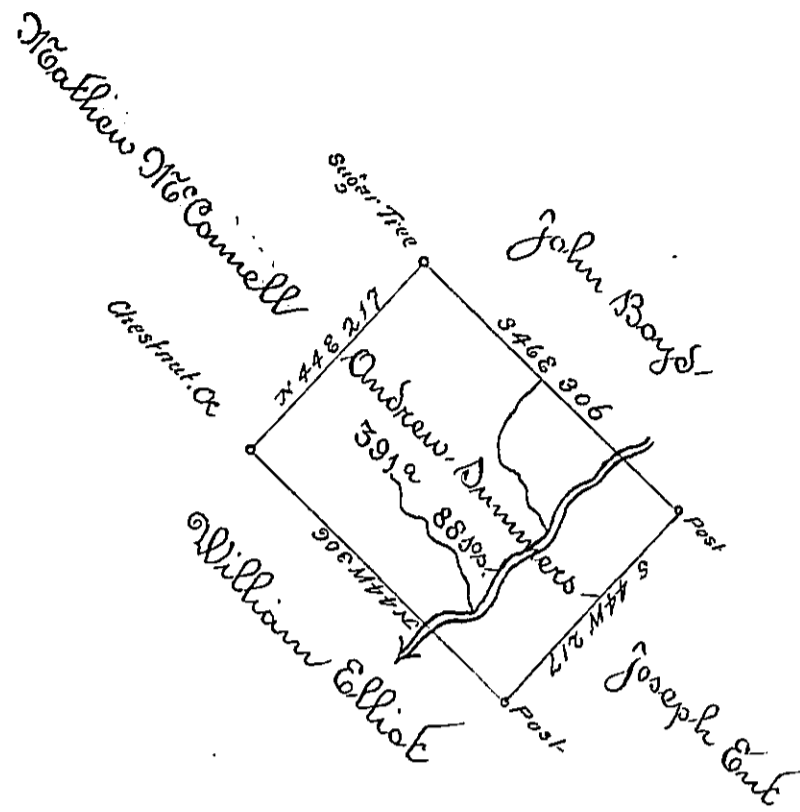 Mathew McConnell
Sugar Tree
John Boyd
Chestnut. O
N 44 E 217
S 46 E 306
Andrew Summers
391 a
88 sp.
Post
N 44 W 306
S 44 W 217
William Elliot
Post
Joseph Ent